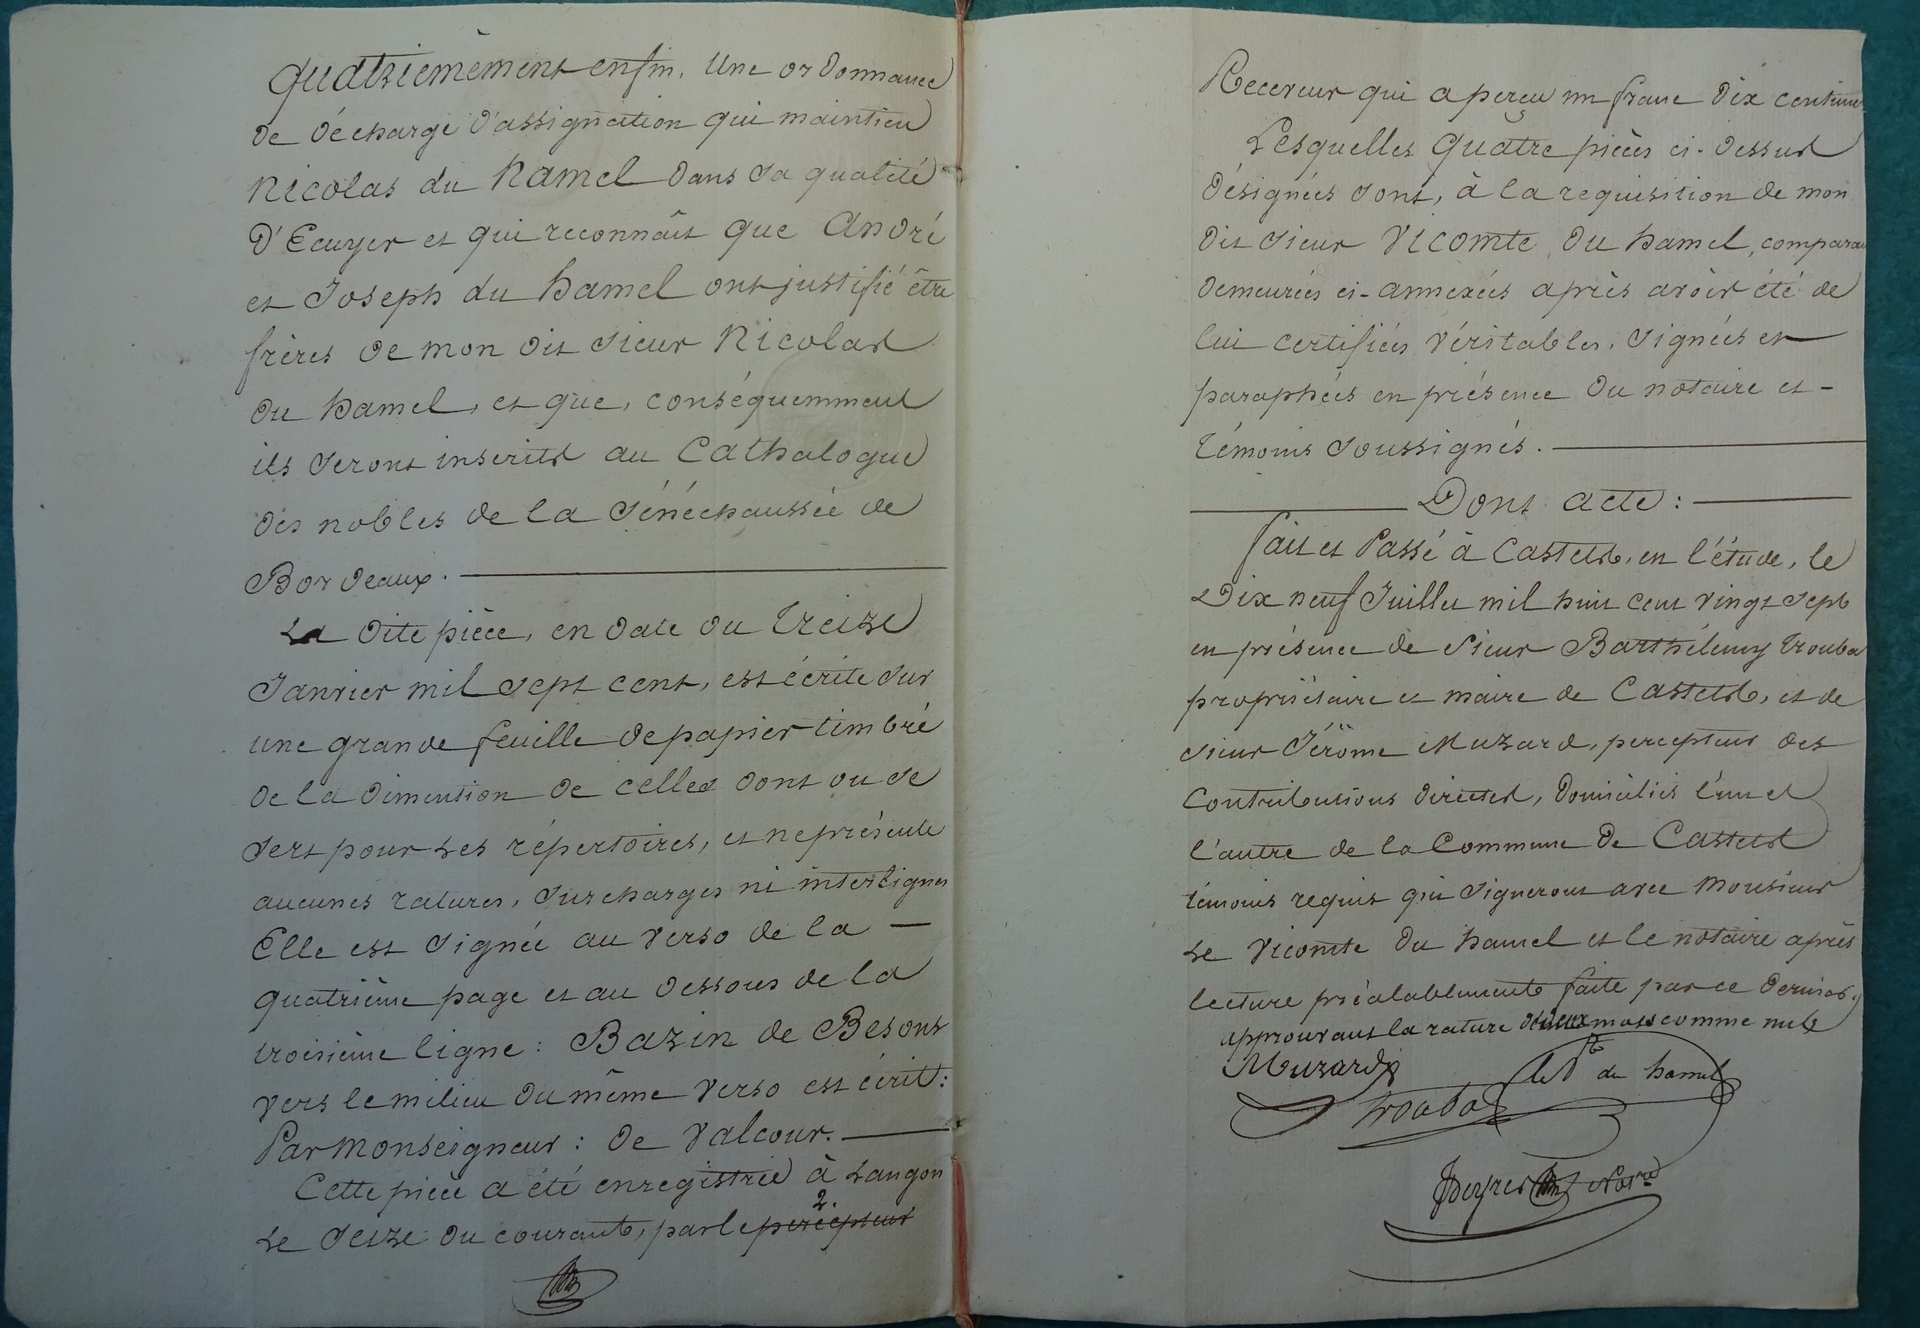 Quatrièmement enfin, Une ordonnance
de décharge d'assignation qui maintien
Nicolas du hamel dans sa qualité
D'Ecuyer et qui reconnaît que André
et Joseph du hamel ont justifié être
frères de mon dit sieur Nicolas
du hamel, et que, conséquemment
ils seront inscrits au Cathalogue
des nobles de la sénéchaussée de
Bordeaux.
La dite pièce, en date du treize
Janvier mil sept cent, est écrite sur
une grande feuille de papier timbré
de la dimention de celles dont on se
sert pour les répertoires, et ne présente
aucunes ratures, surcharges ni interlignes
Elle est signée au verso de la
quatrième page et au dessous de la
troisième ligne : Bazin de Besons
vers le milieu du même verso est écrit :
Par Monseigneur : de Valcour.
Cette pièce a été enregistrée à Langon
2.
Le seize du courant, par le percepteur
Receveur qui a perçu un franc dix centimes
Lesquelles quatre pièces ci-dessus
désignées sont, à la requisition de mon
dit sieur Vicomte du hamel, comparant
demeurées ci-annexées après avoir été de
lui certifiées véritables, signées et
paraphées en présence du notaire et
témoins soussignés.
Dont acte :
fait et Passé à Castets, en l'étude, le
Dix neuf Juillet mil huit cent vingt sept
en présence de sieur Barthélemy trouba
propriétaire et maire de Castets, et de
sieur Jérôme Muzard, percepteur des
Contributions directes, domiciliés l'un et
l'autre de la Commune de Castets
témoins requis qui signeront avec Monsieur
Le Vicomte du hamel et le notaire après
lecture préalablement faite par ce dernier,
approuvant la rature mots comme nuls
Muzard
du hamel
trouba